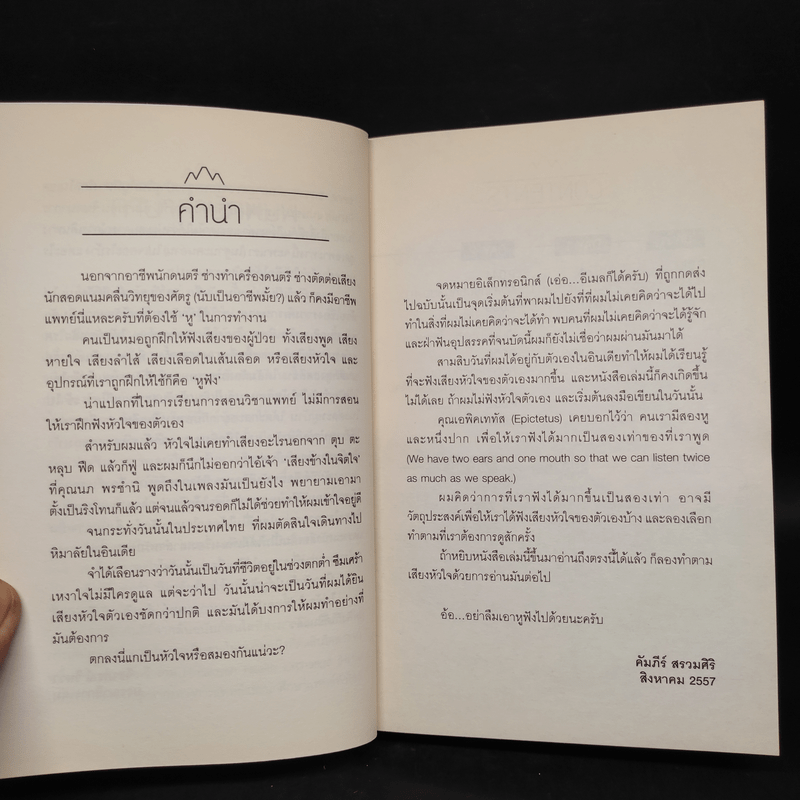 คำนำ
นอกจากอาชีพนักดนตรี ช่างทำเครื่องดนตรี ช่างตัดต่อเสียง
นักสอดแนมคลื่นวิทยุของศัตรู (นับเป็นอาชีพมั้ย?) แล้ว ก็คงมีอาชีพ
แพทย์นี่แหละครับที่ต้องใช้ 'หู' ในการทำงาน
คนเป็นหมอถูกฝึกให้ฟังเสียงของผู้ป่วย ทั้งเสียงพูด เสียง
หายใจ เสียงลำไส้ เสียงเลือดในเส้นเลือด หรือเสียงหัวใจ และ
อุปกรณ์ที่เราถูกฝึกให้ใช้ก็คือ 'หูฟัง'
น่าแปลกที่ในการเรียนการสอนวิชาแพทย์ ไม่มีการสอน
ให้เราฝึกฟังหัวใจของตัวเอง
สำหรับผมแล้ว หัวใจไม่เคยทำเสียงอะไรนอกจาก ตุบ ตะ
หลุบ ฟืด แล้วก็ฟู่ และผมก็นึกไม่ออกว่าไอ้เจ้า 'เสียงข้างในจิตใจ'
ที่คุณนภ พรชำนิ พูดถึงในเพลงมันเป็นยังไง พยายามเอามา
ตั้งเป็นริงโทนก็แล้ว แต่จนแล้วจนรอดก็ไม่ได้ช่วยทำให้ผมเข้าใจอยู่ดี
จนกระทั่งวันนั้นในประเทศไทย ที่ผมตัดสินใจเดินทางไป
หิมาลัยในอินเดีย
จำได้เลือนรางว่าวันนั้นเป็นวันที่ชีวิตอยู่ในช่วงตกต่ำ ซึมเศร้า
เหงาใจไม่มีใครดูแล แต่จะว่าไป วันนั้นน่าจะเป็นวันที่ผมได้ยิน
เสียงหัวใจตัวเองชัดกว่าปกติ และมันได้บงการให้ผมทำอย่างที่
มันต้องการ
ตกลงนี่แกเป็นหัวใจหรือสมองกันแน่วะ?
จดหมายอิเล็กทรอนิกส์ (เอ่อ...อีเมลก็ได้ครับ) ที่ถูกกดส่ง
ไปฉบับนั้นเป็นจุดเริ่มต้นที่พาผมไปยังที่ที่ผมไม่เคยคิดว่าจะได้ไป
ทำในสิ่งที่ผมไม่เคยคิดว่าจะได้ทำ พบคนที่ผมไม่เคยคิดว่าจะได้รู้จัก
และฝ่าฟันอุปสรรคที่จนบัดนี้ผมก็ยังไม่เชื่อว่าผมผ่านมันมาได้
สามสิบวันที่ผมได้อยู่กับตัวเองในอินเดียทำให้ผมได้เรียนรู้
ที่จะฟังเสียงหัวใจของตัวเองมากขึ้น และหนังสือเล่มนี้ก็คงเกิดขึ้น
ไม่ได้เลย ถ้าผมไม่ฟังหัวใจตัวเอง และเริ่มต้นลงมือเขียนในวันนั้น
คุณเอพิคเททัส (Epictetus) เคยบอกไว้ว่า คนเรามีสองหู
และหนึ่งปาก เพื่อให้เราฟังได้มากเป็นสองเท่าของที่เราพูด
(We have two ears and one mouth so that we can listen twice
as much as we speak.)
ผมคิดว่าการที่เราฟังได้มากขึ้นเป็นสองเท่า อาจมี
วัตถุประสงค์เพื่อให้เราได้ฟังเสียงหัวใจของตัวเองบ้าง และลองเลือก
ทำตามที่เราต้องการดูสักครั้ง
ถ้าหยิบหนังสือเล่มนี้ขึ้นมาอ่านถึงตรงนี้ได้แล้ว ก็ลองทำตาม
เสียงหัวใจด้วยการอ่านมันต่อไป
อ้อ...อย่าลืมเอาหูฟังไปด้วยนะครับ
คัมภีร์ สรวมศิริ
สิงหาคม 2557